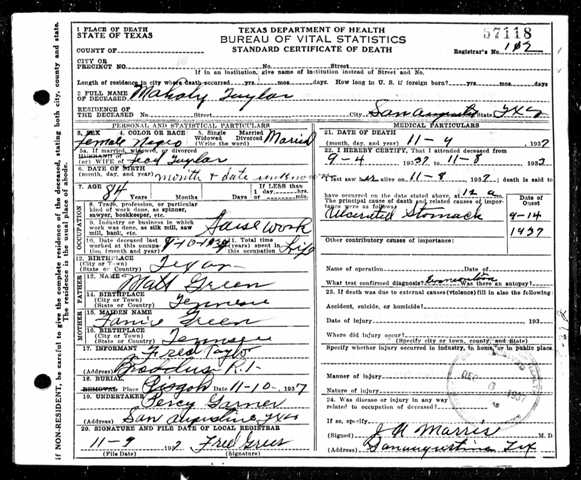 1 PLACE OF DEATH
STATE OF TEXAS
TEXAS DEPARTMENT OF HEALTH
BUREAU OF VITAL STATISTICS
STANDARD CERTIFICATE OF DEATH
57118
COUNTY OF
Registrar's No. 102
CITY OR
PRECINCT NO. No. Street
If in an institution, give name of institution instead of Street and No.
Length of residence in city where death occurred yrs. mos. days. How long in U. S. if foreign born? yrs. mos. days
2 FULL NAME
OF DECEASED Mahaly Taylor
RESIDENCE OF
THE DECEASED No. Street City San Augustine State Tex
PERSONAL AND STATISTICAL PARTICULARS
MEDICAL PARTICULARS
3. SEX 4. COLOR OR RACE 5. Single Married
Widowed Divorced
(Write the word)
female Negro Married
5a. If married, widowed, or divorced
HUSBAND OF
(or) WIFE OF Taylor
6. DATE OF BIRTH
(month, day, year) month & date unknown
7. AGE 84
Years Months Days
If LESS than
1 day
hrs. min.
OCCUPATION
8. Trade, profession, or particular
kind of work done, as spinner,
sawyer, bookkeeper, etc.
9. Industry or business in which
work was done, as silk mill, saw
mill, bank, etc. House work
10. Date deceased last
worked at this occupation
11. Total time
(years) spent in
this occupation Life
12. BIRTHPLACE
(City or Town)
(State or Country) Texas
FATHER
13. NAME Walt Green
14. BIRTHPLACE
(City or Town)
(State or Country) Tennesse
MOTHER
15. MAIDEN
NAME Green
16. BIRTHPLACE
(City or Town)
(State or Country)
17. INFORMANT Fred Taylor
(Address) R. 1.
18. BURIAL,
REMOVAL Place Date 11-10- 1937
19. UNDERTAKER Percy Garner
(Address) San Augustine, Texas
20. SIGNATURE AND FILE DATE OF LOCAL REGISTRAR
11-9 Fred Greer
(File Date) (Signature)
21. DATE OF DEATH
(month, day, and year) 1937
22. I HEREBY CERTIFY, That I attended deceased from
9-4 1937, to 11-8 1937
I last saw alive on 11-8 1937, death is said to
have occurred on the date stated above, at 12 a
The principal cause of death and related causes of importance
were as follows:
Date of
Onset
Ulcerated Stomach
9-14
1937
Other contributory causes of importance:
Name of operation Date of
What test confirmed diagnosis? Was there an autopsy?
23. If death was due to external causes (violence) fill in also the following:
Accident, suicide, or homicide?
Date of injury 193
Where did injury occur?
(Specify city or town, county, and State)
Specify whether injury occurred in industry, in home, or in public place.
Manner of injury
Nature of injury
24. Was disease or injury in any way
related to occupation of deceased?
If so, specify
(Signed) M. D.
(Address) San Augustine Tex